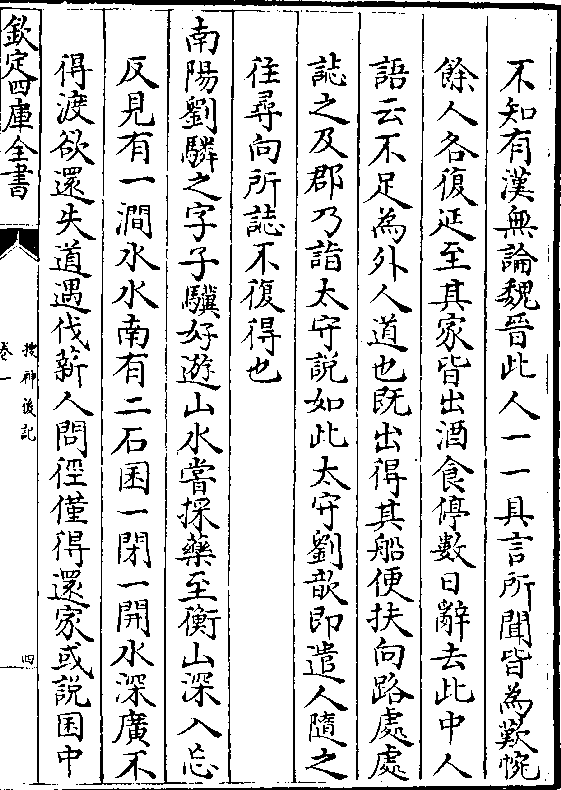 不知有漢無論魏晉此人一一具言所聞皆為歎惋
餘人各復延至其家皆出酒食停數日辭去此中人
語云不足為外人道也既出得其船便扶向路處處
誌之及郡乃詣太守說如此太守劉歆即遣人隨之
往尋向所誌不復得也
南陽劉驎之字子驥好遊山水嘗採藥至衡山深入忘
反見有一澗水水南有二石囷一閉一開水深廣不
得渡欲還失道遇伐薪人問徑僅得還家或說囷中
欽定四庫全書
搜神後記
卷一
四